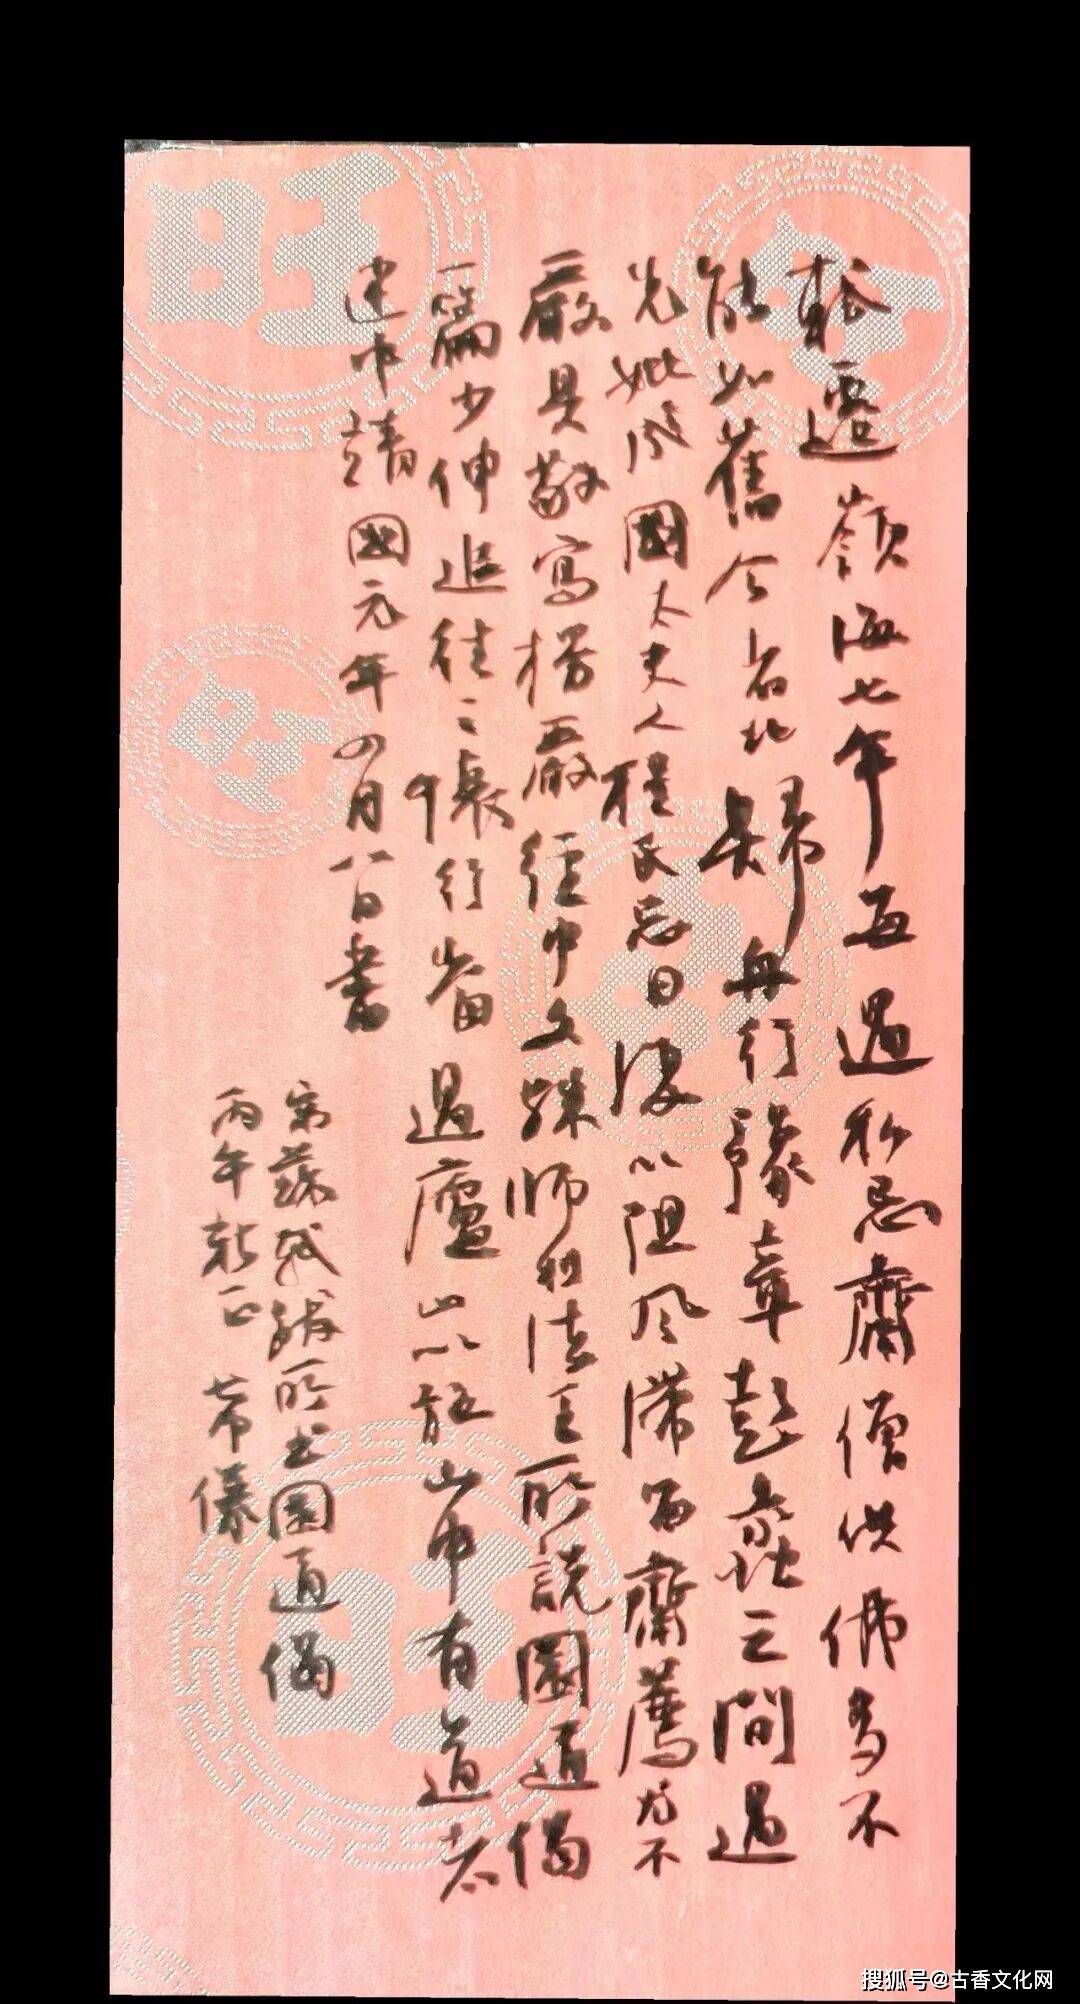 軾遷嶺海七年每遇私忌齋僧供佛多不
能如舊今者北歸舟行豫章彭蠡之間遇
先妣成國太夫人程氏忌日復以阻风滯留齋薦尤不
嚴具敬寫楞嚴經中文殊师利法王所說圓通偈
一篇少伸追往之懷行當過廬山以施山中有道者
建中靖國元年四月八日書
宋蘇軾跋所书圓通偈
丙午新正 儀
旺
旺
旺
搜狐号@古香文化网